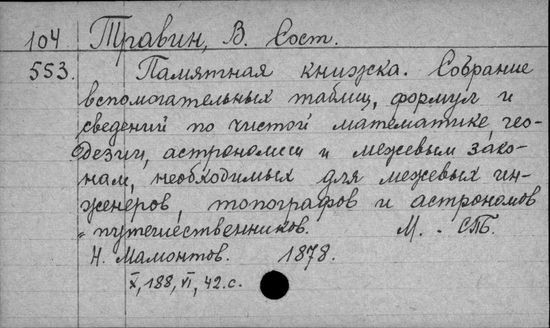 104 Травин, В. Сост.
553. Памятная книжка. Собрание
вспомогательных таблиц, формул и
сведений по чистой математике, гео-
дезии, астрономии и межевым зако-
нам, необходимых для межевых ин-
женеров, топографов и астрономов
-путешественников. М. - СПб.
Н. Мамонтов. 1878.
X, 188, VI, 42. с.